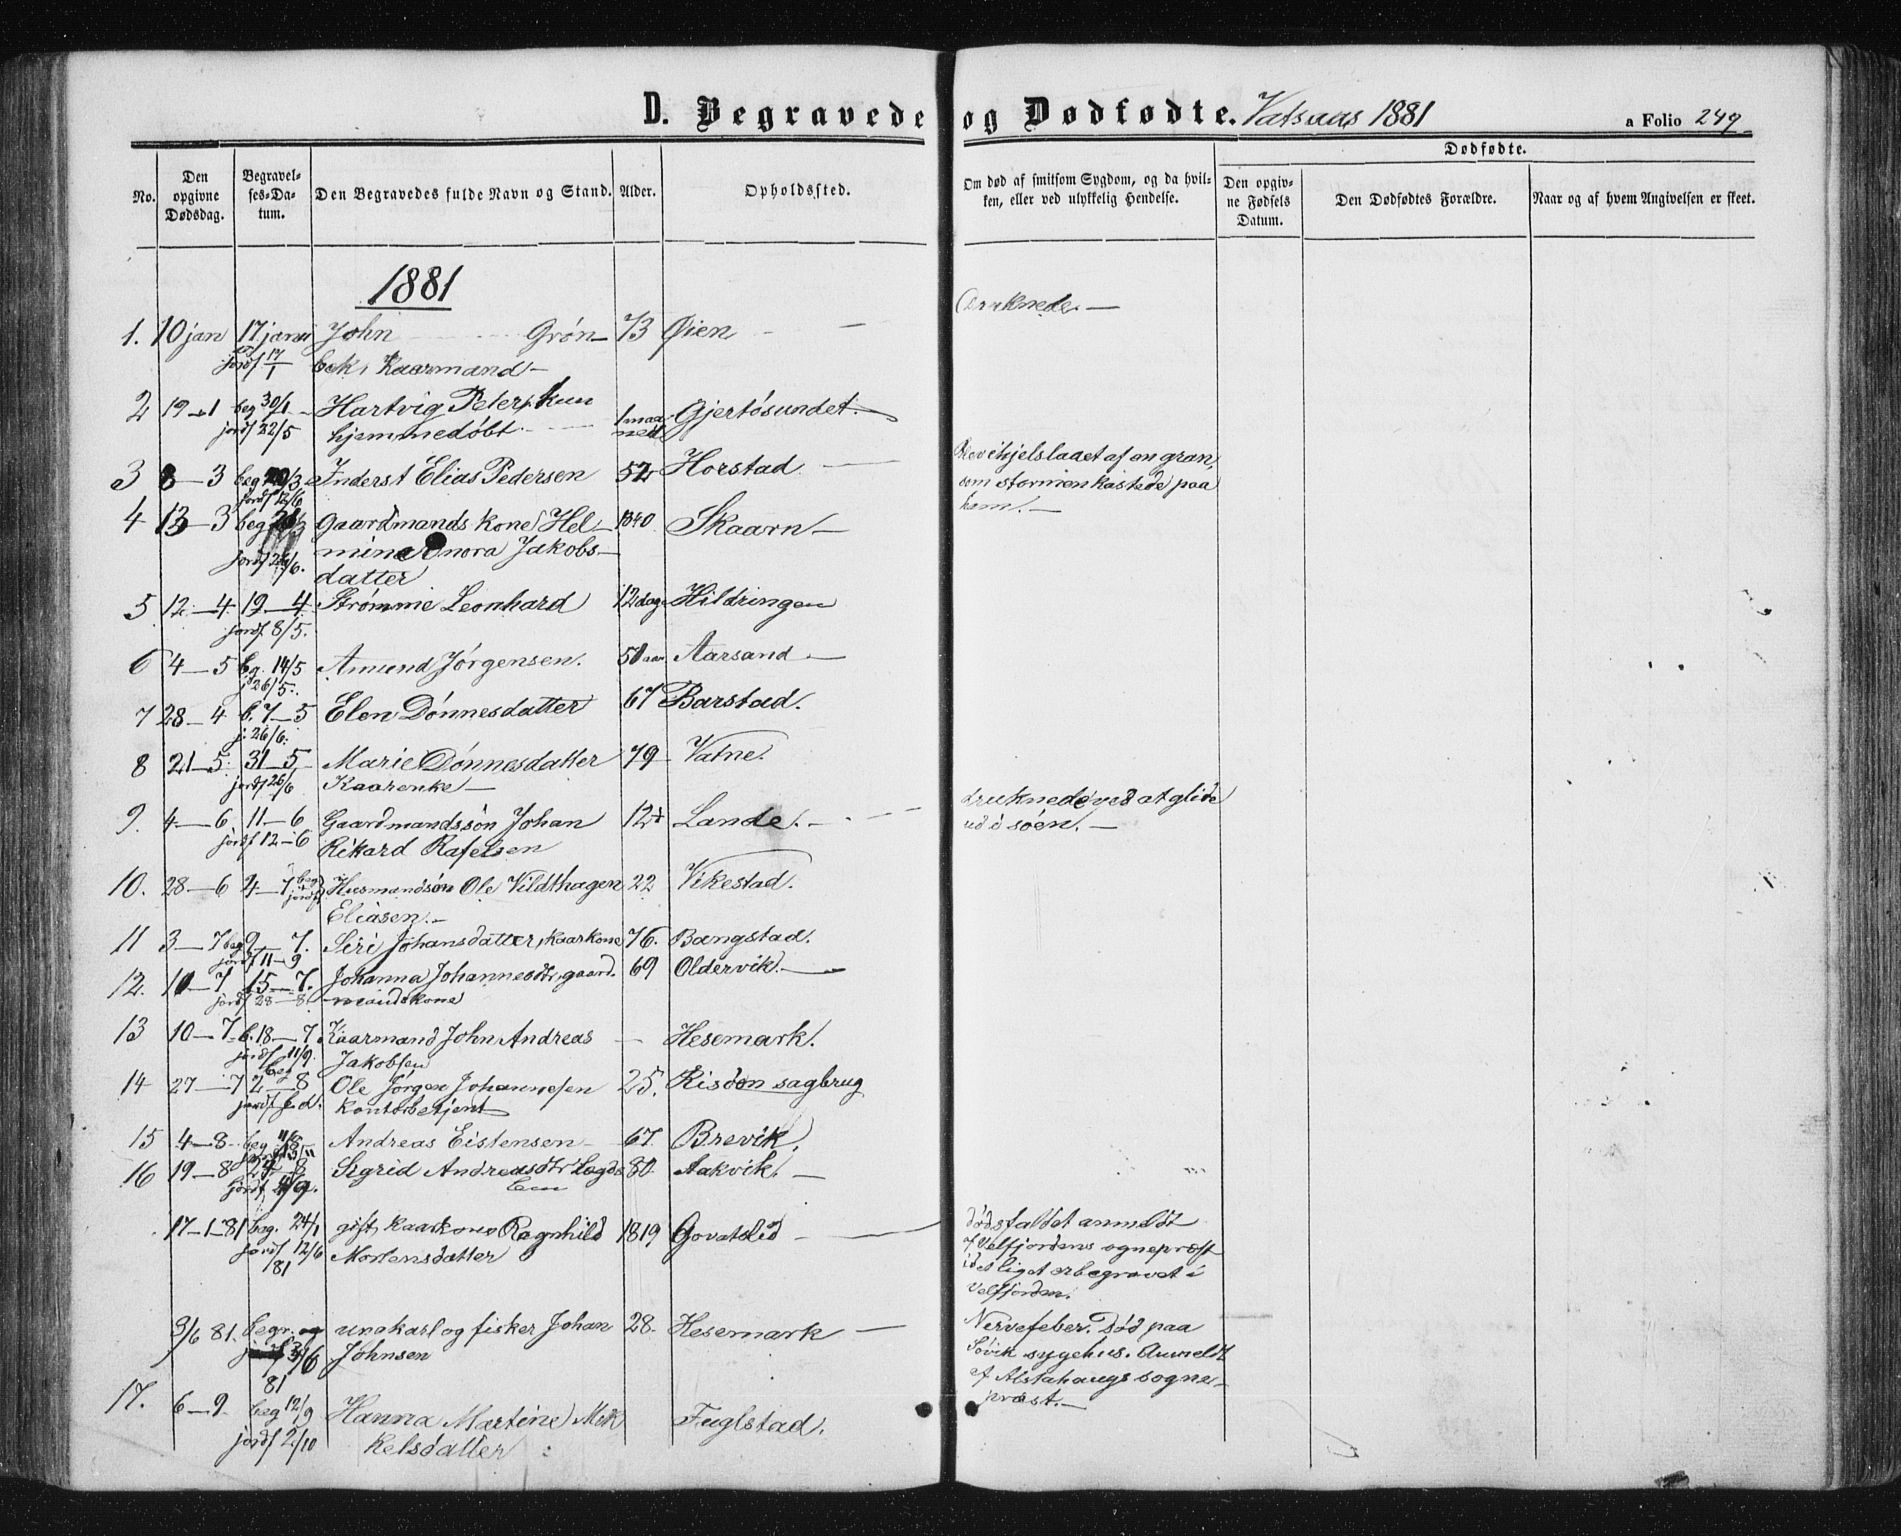 D. Begravede og Dødfødte. Vatsaas 1881
a Folio 249
No.
Den opgivne Dødsdag.
Begravelses-Datum.
Den Begravedes fulde Navn og Stand.
Alder.
Opholdssted.
Om død af smitsom Sygdom, og da hvilken, eller ved ulykkelig Hendelse.
Dødfødte.
Den opgivne Fødsels Datum.
Den Dødfødtes Forældre.
Naar og af hvem Angivelsen er skeet.
1881
1. 10 jan 17 janu John Grøn- 73 Øien druknede.
jordf 17/1 bek, Kaarmand
2 19-1 beg 30/1 Hartvig Peter, kun 1 maaned Gjertøsundet.
jordf 22/5 hjemmedøbt.
3 8-3 beg 20/3 Inderst Elias Pedersen 52 Horstad Blev ihjelslaaet af en gran,
jordf 12/6 som stormen kastede paa
4 13-3 beg Gaardmands kone Hel- 1840 Skaarn ham.
jordf 26/6. mine nora Jakobs-
datter
5 12-4 19-4 Strømme Leonhard 12 dage Hildringen
jordf 8/5.
6 4-5 bg. 14/5 Amund Jørgensen. 50 aar Aarsand
j 26/5.
7 28-4 b. 7-5 Elen Dønnesdatter 67 Barstad.
j. 26/6.
8 21-5 31-5 Marie Dønnesdatter 79 Vatne.
jordf 26/6 Kaarenke
9. 4-6 11-6 Gaardmandssøn Johan 12 Lande. druknede ved at glide
jordf 12-6 Rikard Rafelsen ud i søen.
10. 28-6 4-7 beg jordf Husmandsøn Ole Vildthagen 22 Vikestad.
Eliasen.
11 3-7 beg 9-7. Siri Johansdatter, kaarkone 76. Bangstad.
jordf 11-9
12. 10-7 15-7. Johanna Johannesdtr, gaard- 69 Oldervik.
jordf 28-8. mandskone
13 10-7 b. 18-7 Kaarmand John Andreas - Hesemark.
jordf 11/9. Jakobsen
14 27-7 beg 2-8 Ole Jørgen Johannesen 25. Risøen sagbrug
jordf s.d. kontorbetjent
15 4-8 beg 11/8 Andreas Eistensen 67 Brevik.
16 19-8 24-8 Sigrid Andreasdtr Lægds 80 Aakvik.
jordf 4/9. lem
17-1-81 beg. 24/1 gift, kaarkone Ragnhild 1819 Govatslid dødsfaldet anmeldt
jordf 12/6 81 Mortensdatter af Velfjordens sognepræst
idet liget er begravet i
Velfjorden.
3/6 81. begr. og ungkarl og fisker Johan 28. Hesemark Nervefeber. Død paa
Johnsen Søvik sygehus. Anmeldt
81 af Alstahaugs sogne-
præst.
17. 6-9 beg 12/9 Hanna Martine Mik Fuglstad.
jordf 2/10 kelsdatter